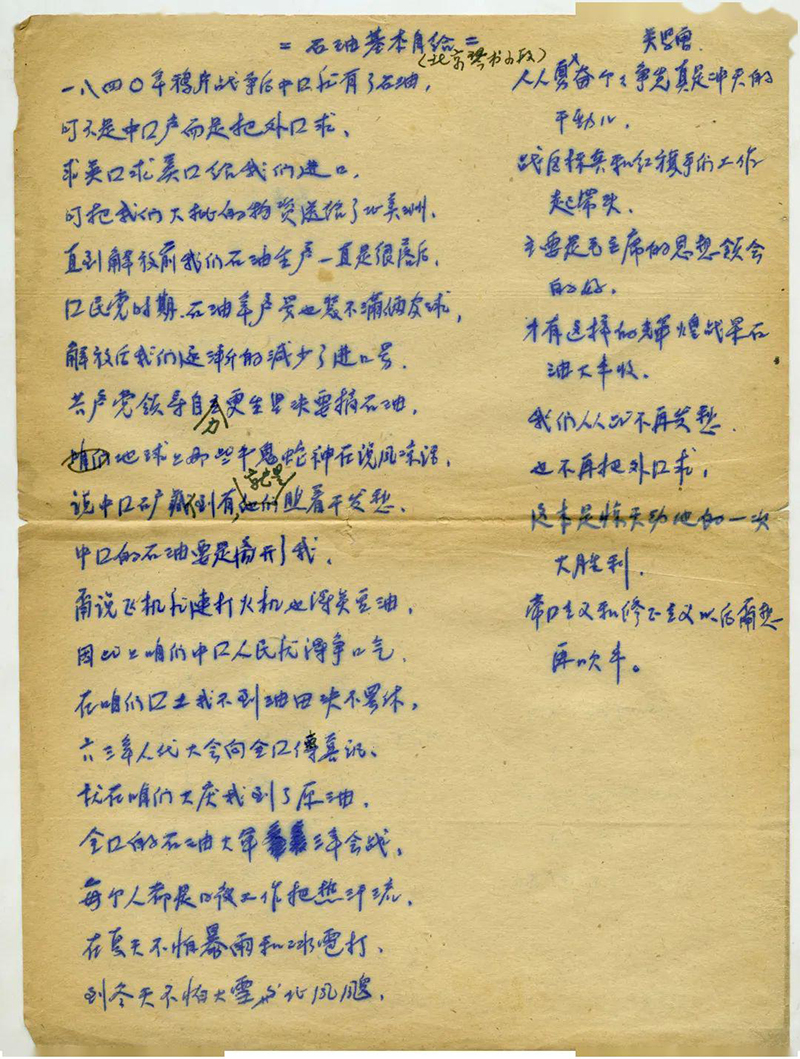 =石油基本自给=
(北京琴书小段)
一八四〇年鸦片战争后中口就有了石油,
可不是中口产而是把外口求、
求英口求美口给我们进口,
可把我们大批的物资送给了北美洲、
直到解放前我们石油生产一直是很落后,
口民党时期、石油年产量也装不满俩皮球,
解放后我们逐渐的减少了进口量、
共产党领导自力更生坚决要搞石油,
地球上那些牛鬼蛇神在说风凉话,
说中口矿藏到有,就是他们瞅着干发愁、
中口的石油要是离开了我、
甭说飞机就连打火机也得关豆油,
因此上咱们中口人民就得争口气、
在咱们口土找不到油田决不罢休,
六三年人代大会向全口傳喜讯、
就在咱们大庆找到了原油、
全口的石油大军三年会战,
每个人都是日夜工作把热汗流、
在夏天不怕暴雨和冰雹打、
到冬天不怕大雪与北风飕、
人人奋个个争先真是冲天的
干劲儿、
战区标兵和红旗手们工作
起带头、
主要是毛主席的思想领会
的好、
才有这样的辉煌战果石
油大丰收、
我们从此不再发愁、
也不再把外口求,
这本是惊天动地的一次
大胜利、
帝口主义和修正主义以后甭想
再吹牛。